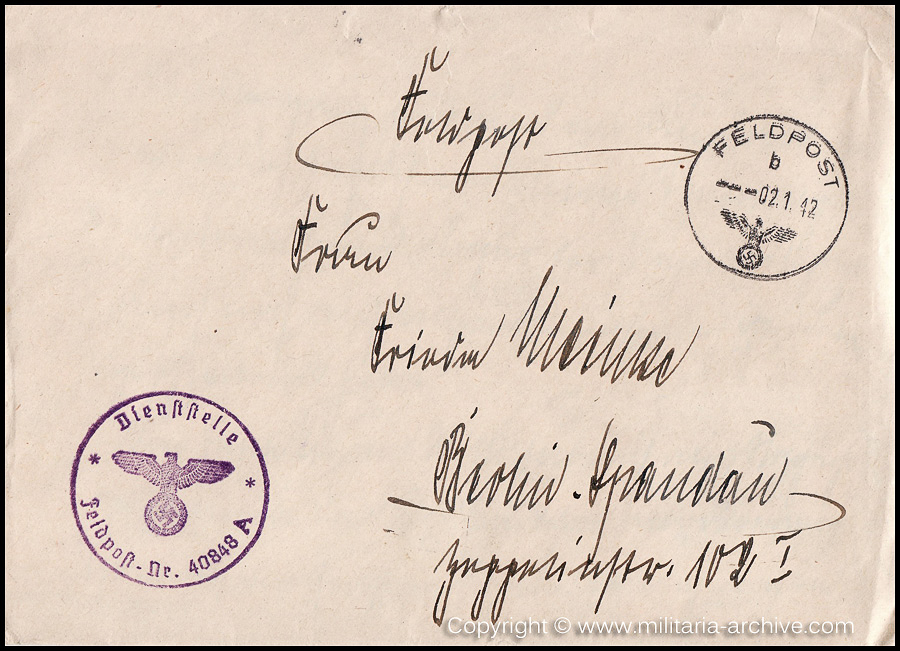 Feldpost
FELDPOST
b
02.1.42
Frau
Frieda Meinke
Berlin-Spandau
Zeppelinstr. 102 I
Dienststelle
* *
Feldpost-Nr. 40848 A
Copyright © www.militaria-archive.com